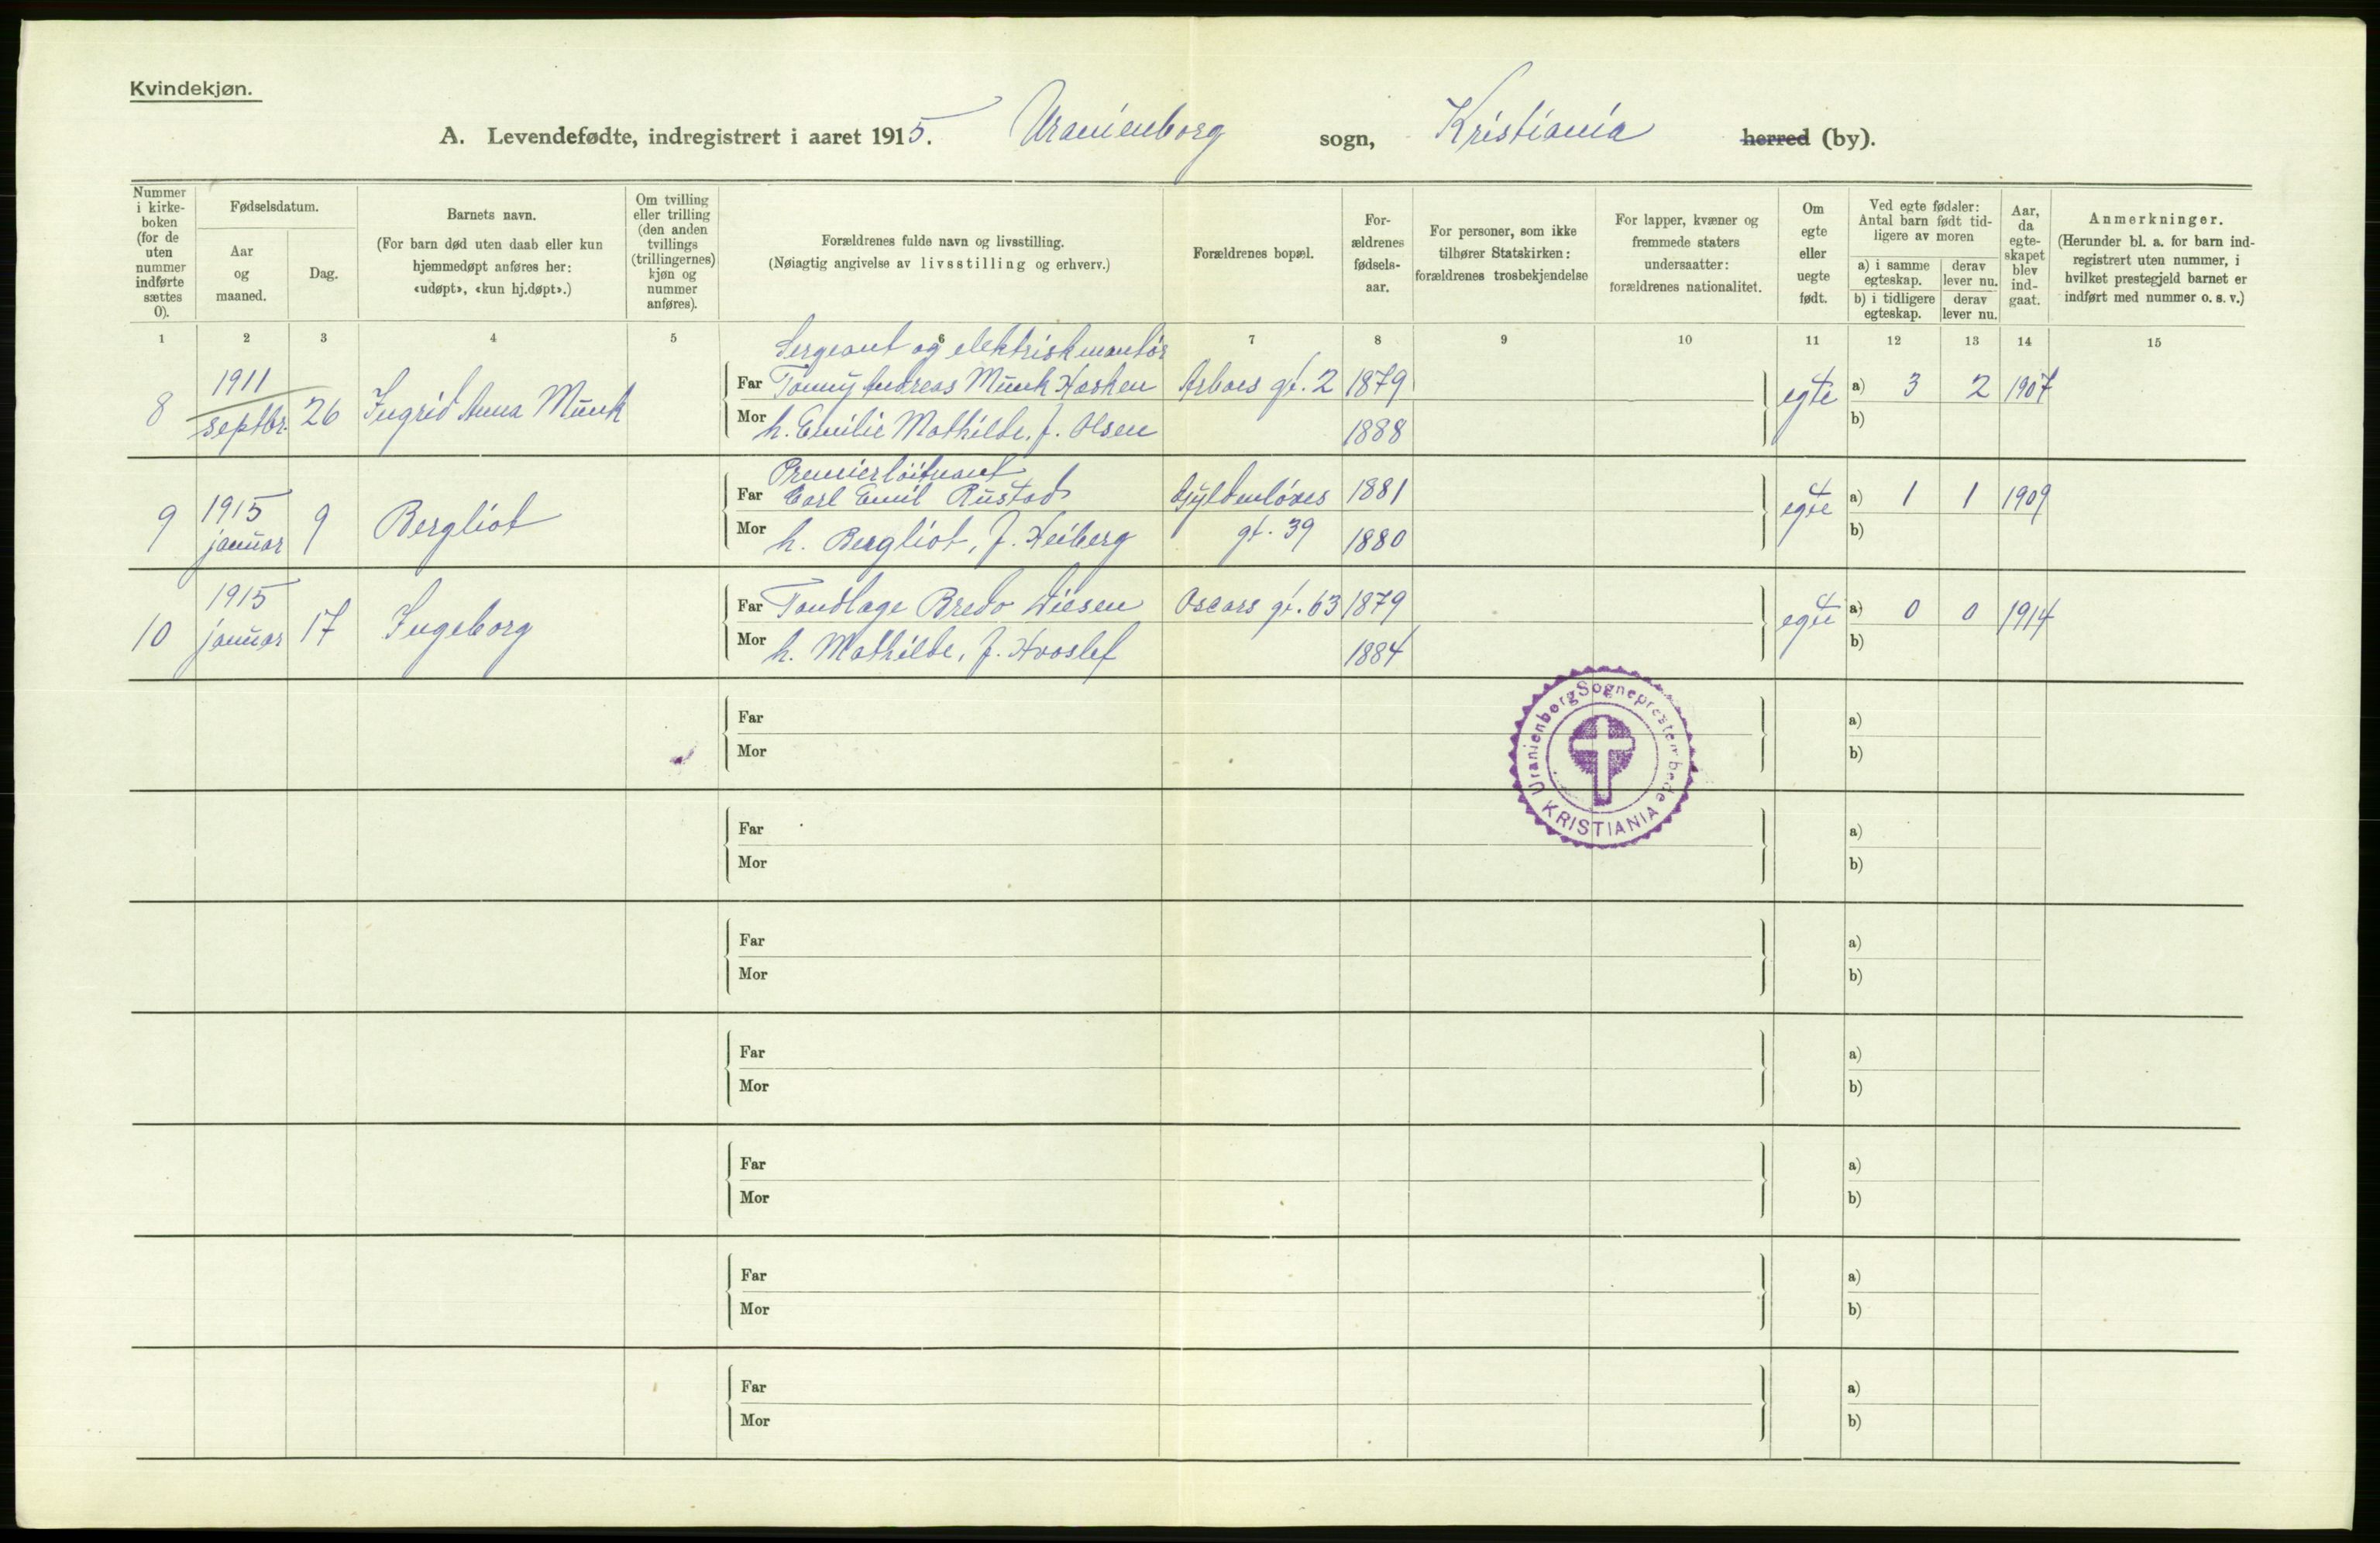 Kvindekjøn.
A. Levendefødte, indregistrert i aaret 1915. Uranienborg sogn, Kristiania herred (by).
Nummer i kirke-boken (for de uten nummer indførte sættes 0).
Fødselsdatum.
Aar og maaned.
Dag.
Barnets navn.
(For barn død uten daab eller kun hjemmedøpt anføres her: «udøpt», «kun hj.døpt».)
Om tvilling eller trilling (den anden tvillings (trillingernes) kjøn og nummer anføres).
Forældrenes fulde navn og livsstilling.
(Nøiagtig angivelse av livsstilling og erhverv.)
Forældrenes bopæl.
For-ældrenes fødsels-aar.
For personer, som ikke tilhører Statskirken: forældrenes trosbekjendelse
For lapper, kvæner og fremmede staters undersaatter: forældrenes nationalitet.
Om egte eller uegte født.
Ved egte fødsler: Antal barn født tid-ligere av moren
a) i samme egteskap.
derav lever nu.
b) i tidligere egteskap.
derav lever nu.
Aar, da egte-skapet blev ind-gaat.
Anmerkninger.
(Herunder bl. a. for barn ind-registrert uten nummer, i hvilket prestegjeld barnet er indført med nummer o. s. v.)
1 2 3 4 5 6 7 8 9 10 11 12 13 14 15
Sergeant og elektriskmontør
8 1911 septbr. 26 Ingrid Anna Munk Far Tonny Andreas Munk Arboes gt. 2 1879 egte a) 3 2 1907
Mor h. Emilie Mathilde, f. Olsen 1888 b)
Premierløitnant
9 1915 januar 9 Bergliot Far Carl Emil Rustad Gyldenløves 1881 egte a) 1 1 1909
Mor h. Bergliot, f. Heiberg gt. 39 1880 b)
10 1915 januar 17 Ingeborg Far Tandlæge Bredo Diesen Oscars gt. 63 1879 egte a) 0 0 1914
Mor h. Mathilde, f. Hvoslef 1884 b)
Far a)
Mor b)
Uranienborg Sogneprestembede KRISTIANIA
Far a)
Mor b)
Far a)
Mor b)
Far a)
Mor b)
Far a)
Mor b)
Far a)
Mor b)
Far a)
Mor b)